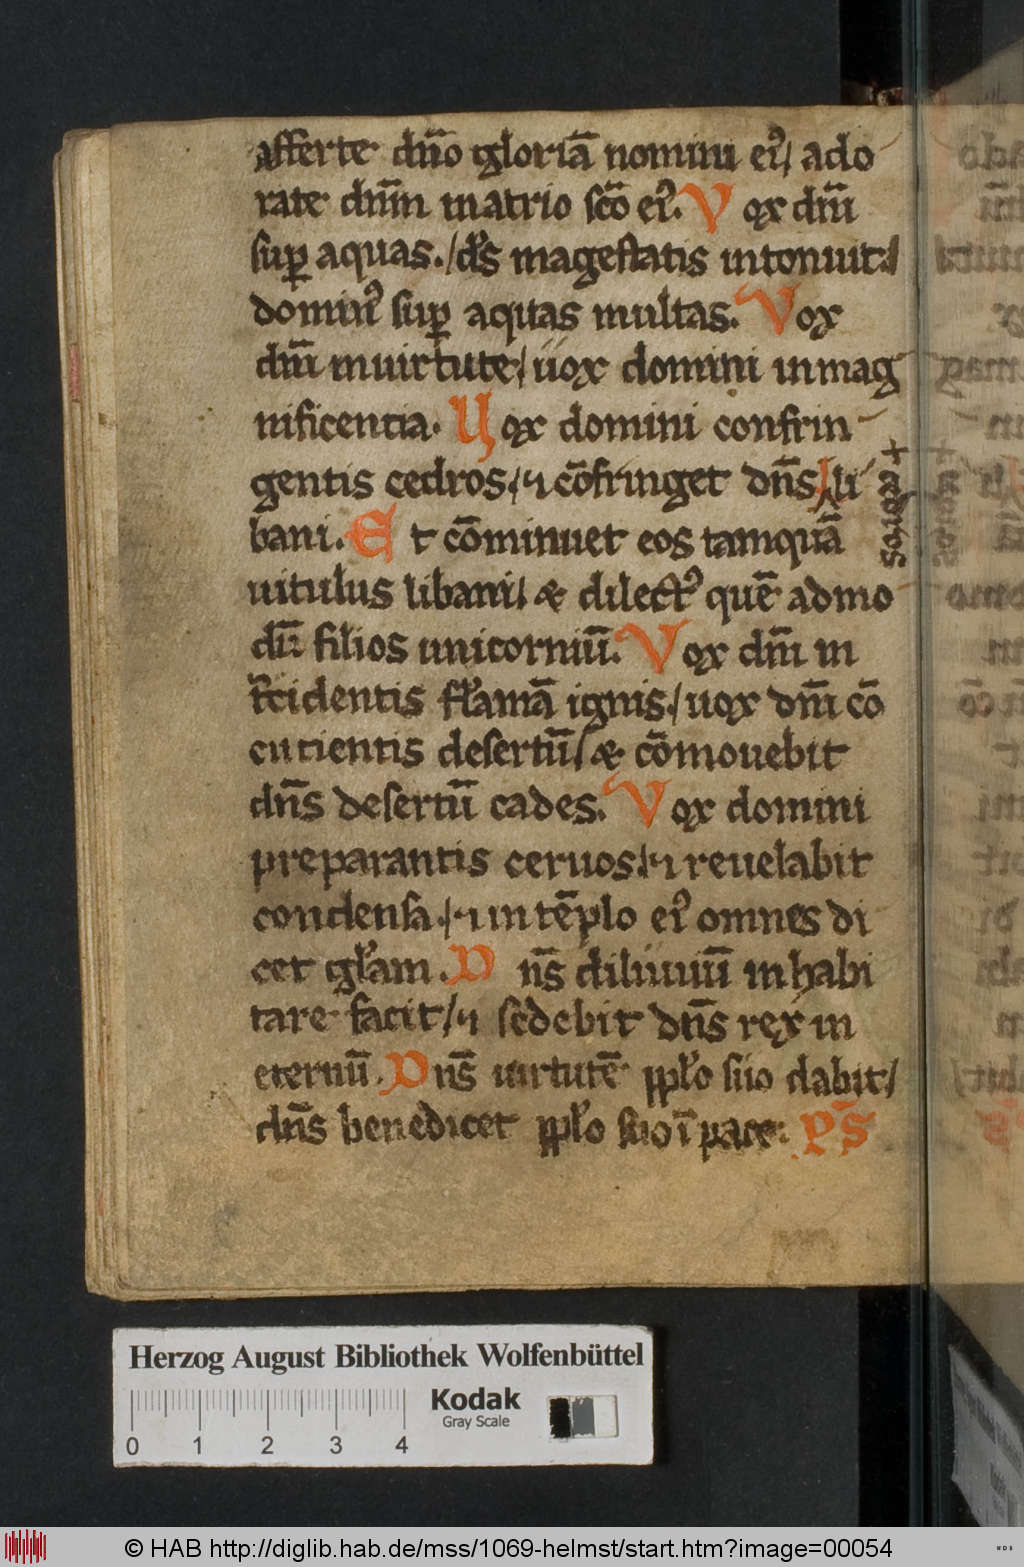 afferte dn̄o gloriā nomini eiꝰ/ ado
rate dnm̄ in atrio sc̄o eiꝰ. Vox dn̄i
suꝑ aquas./ds̄ magestatis intonuit./
dominꝰ suꝑ aquas multas. Vox
dn̄i in uirtute/ uox domini in mag
nificentia. Uox domini confrin-
gentis cedros/ ⁊ cōfringet dn̄s li
cedros +
bani. Et cōminuet eos tamquā
uitulus libani/ & dilectꝰ quē admo
dū filios unicorniū. Vox dn̄i in
t̄cidentis flamā ignis./ uox dn̄i cō
cutientis desertū/ & cōmouebit
dn̄s desertū cades. Vox domini
preparantis ceruos/ ⁊ reuelabit
condensa./ ⁊ in tēplo eiꝰ omnes di
cet gl̄am. Dn̄s diluuiū inhabi
tare facit/ ⁊ sedebit dn̄s rex in
eternū. Dn̄s uirtutē ppl̄o suo dabit/
dn̄s benedicet ppl̄o suo ī pace. Ps̄
Herzog August Bibliothek Wolfenbüttel
Kodak
Gray Scale
0 1 2 3 4
© HAB http://diglib.hab.de/mss/1069-helmst/start.htm?image=00054